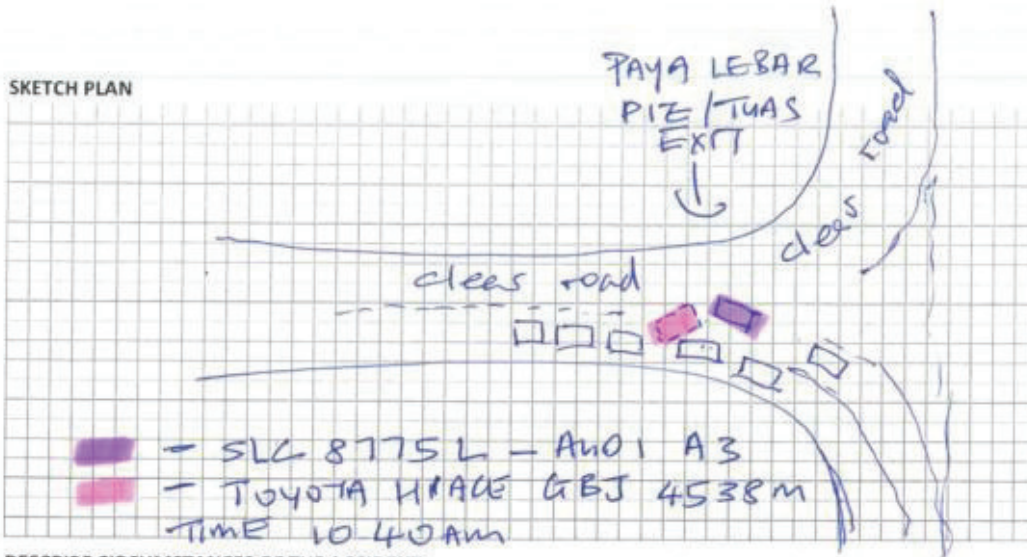 SKETCH PLAN
PAYA LEBAR
PIE / TUAS
EXIT
clear road
clear road
- SLC 8775L - AUDI A3
- TOYOTA HIACE GBJ 4538M
TIME 10:40AM